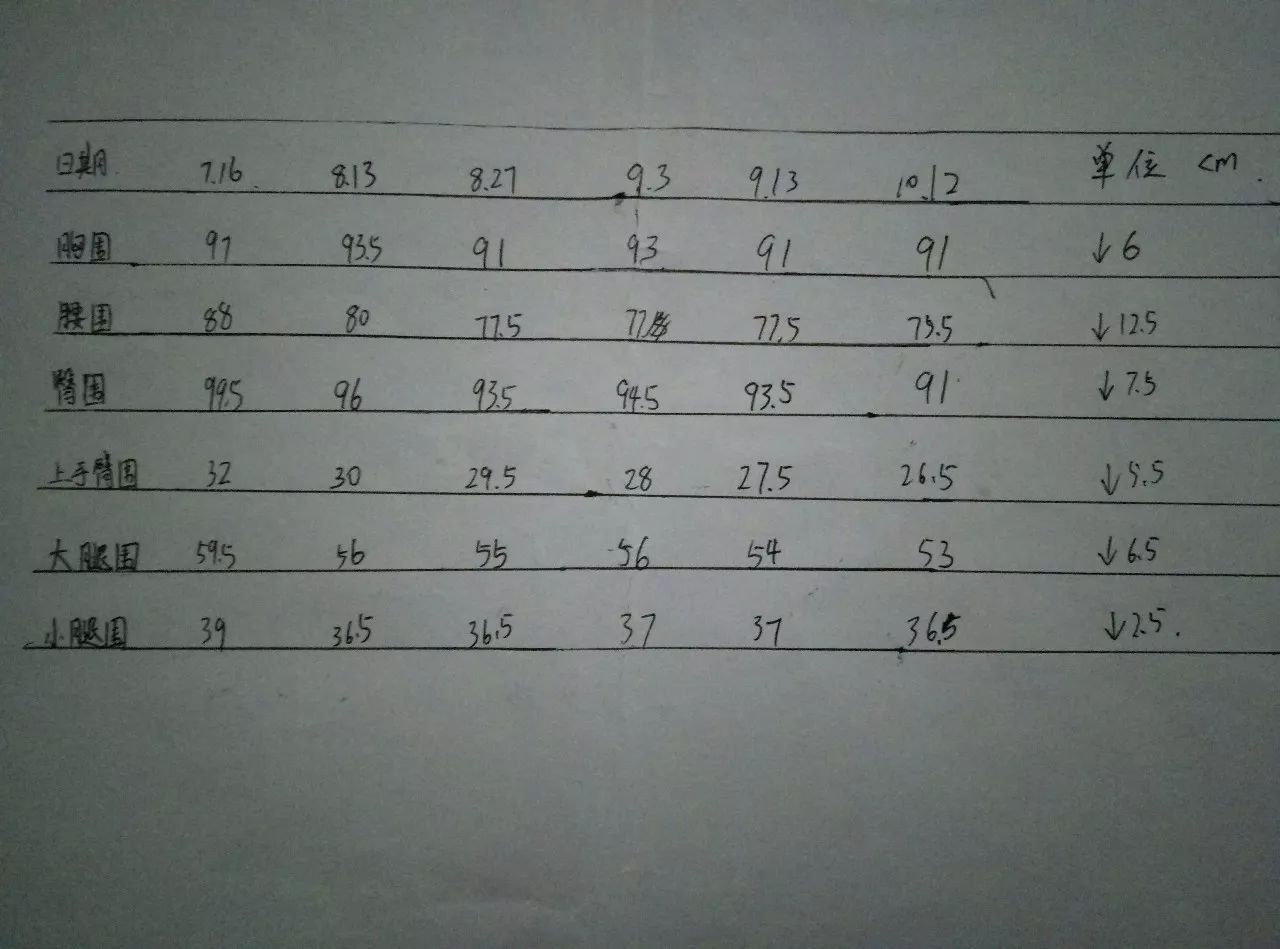 日期 7.16 8.13 8.27 9.3 9.13 10.12 单位 cm
胸围 97 93.5 91 93 91 91 ↓6
腰围 88 80 77.5 77.5 75.5 ↓12.5
臀围 99.5 96 93.5 94.5 93.5 91 ↓7.5
上手臂围 32 30 29.5 28 27.5 26.5 ↓5.5
大腿围 59.5 56 55 56 54 53 ↓6.5
小腿围 39 36.5 36.5 37 37 36.5 ↓2.5.